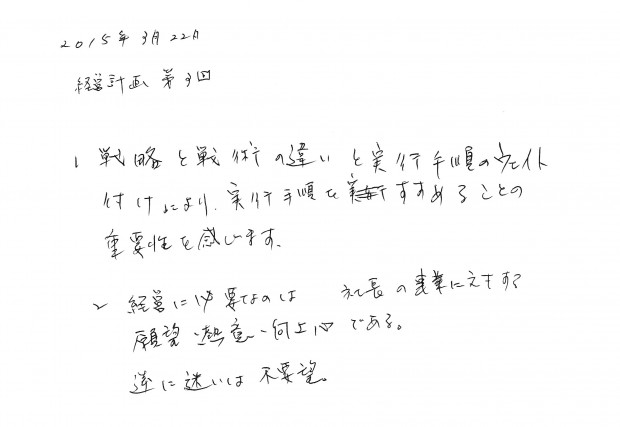 2015年3月22日
経営計画 第3回
1 戦略と戦術の違いと実行手順のウェイト
付けにより、実行手順をすすめることの
重要性を感じます。
2 経営に必要なのは 社長の事業に対する
願望・熱意・向上心である。
逆に迷いは不要望。